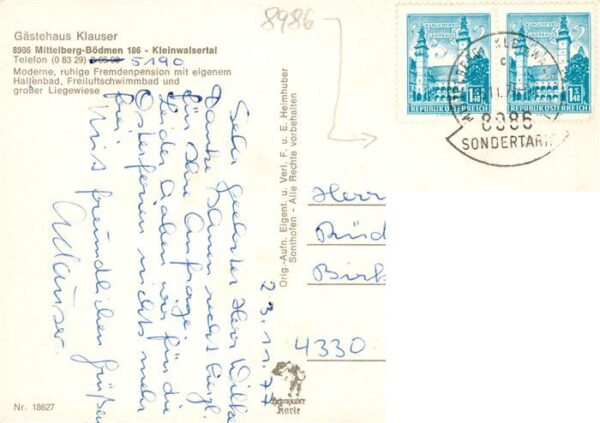 Gästehaus Klauser
8986 Mittelberg-Bödmen 186 - Kleinwalsertal
Telefon (0 83 29) 5190
Moderne, ruhige Fremdenpension mit eigenem
Hallenbad, Freiluftschwimmbad und
großer Liegewiese
8986
1.40 S
1.40 S
REPUBLIK ÖSTERREICH
REPUBLIK ÖSTERREICH
8986
SONDERTARIF
23.11.77
Sehr geehrter Herr
Danke Ihnen recht herzl.
für Ihre Anfrage.
Leider haben wir für die
Osterferien nichts mehr
frei.
Mit freundlichen Grüßen
AKlauser.
Orig.-Aufn. Eigent. u. Verl. F. u. E. Heimhuber
Sonthofen - Alle Rechte vorbehalten
Herr
Rüd
Birk
4330
Heimhuber
Karte
Nr. 18627